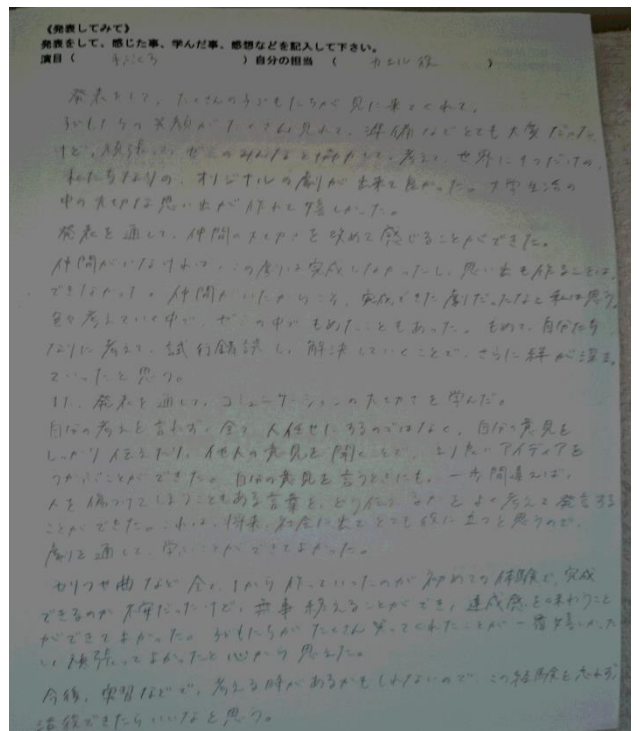 《発表してみて》
発表をして、感じた事、学んだ事、感想などを記入して下さい。
演目( )自分の担当 ( カエル役 )
発表をして、たくさんの子どもたちが見に来てくれて、
子どもたちの笑顔がたくさん見れて、準備などとても大変だった
けど、頑張って、ゼミのみんなと協力して、考えて、世界に1つだけの、
私たちなりの、オリジナルの劇が出来て良かった。大学生活の
中の大切な思い出が作れて嬉しかった。
発表を通して、仲間の大切さを改めて感じることができた。
仲間がいなければ、この劇は完成しなかったし、思い出も作ることは、
できなかった。仲間がいたからこそ、完成できた劇だったなと私は思う。
色々考えていく中で、ゼミの中でもめたこともあった。もめて、自分たち
なりに考えて、試行錯誤し、解決していくことで、さらに絆が深ま
っていったと思う。
また、発表を通して、コミュニケーションの大切さを学んだ。
自分の考えを言わず、全て人任せにするのではなく、自分の意見を
しっかり伝えたり、他人の意見を聞くことで、より良いアイディアを
つかむことができた。自分の意見を言うときにも、一歩間違えば、
人を傷つけてしまうこともある言葉を、どう伝えるかをよく考えて発言する
ことができた。これは、将来、社会に出てとても役に立つと思うので、
劇を通して、学ぶことができてよかった。
セリフや曲など全て1から作っていったのが初めての体験で、完成
できるのか不安だったけど、無事終えることができ、達成感を味わうこと
ができてよかった。子どもたちがたくさん笑ってくれたことが一番嬉しかった
し、頑張ってよかったと心から思えた。
今後、実習などで、考える時があるかもしれないので、この経験を忘れず、
活かせたらいいなと思う。